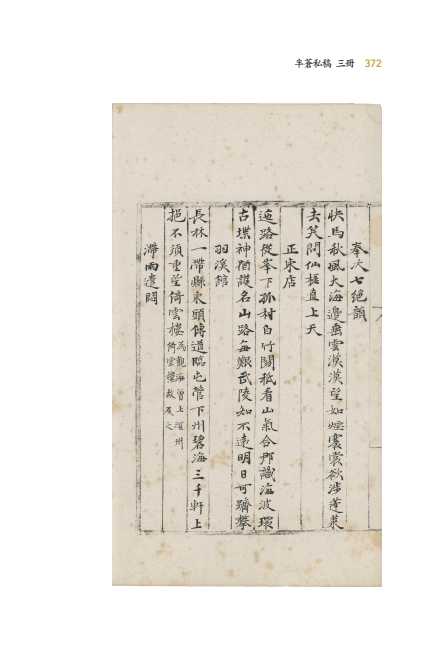 半蒼私稿 三冊 372
奉次七絶韻
快馬秋風大海邊雲漠漠望如煙褰裳欲涉蓬萊
去笑問仙槎直上天
正宋店
逶路從峯下孤村自竹關秪看山氣合那識海波環
古堞神猶護名山路每艱武陵如不遠明日可躋攀
羽溪館
長林一帶縣東頭傳道臨屯管下州碧海三千軒上
挹不須重望倚雲樓
滯雨遣悶